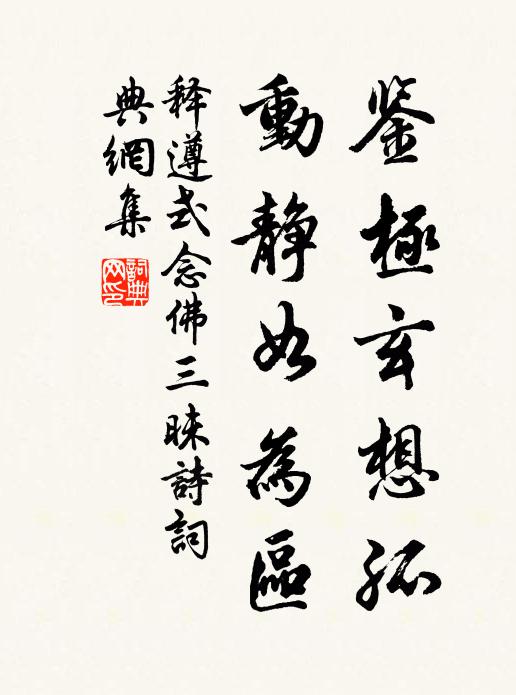 鉴極玄想孤
動静如為區
释遵式念佛三昧詩詞
典網集
詞典
网印